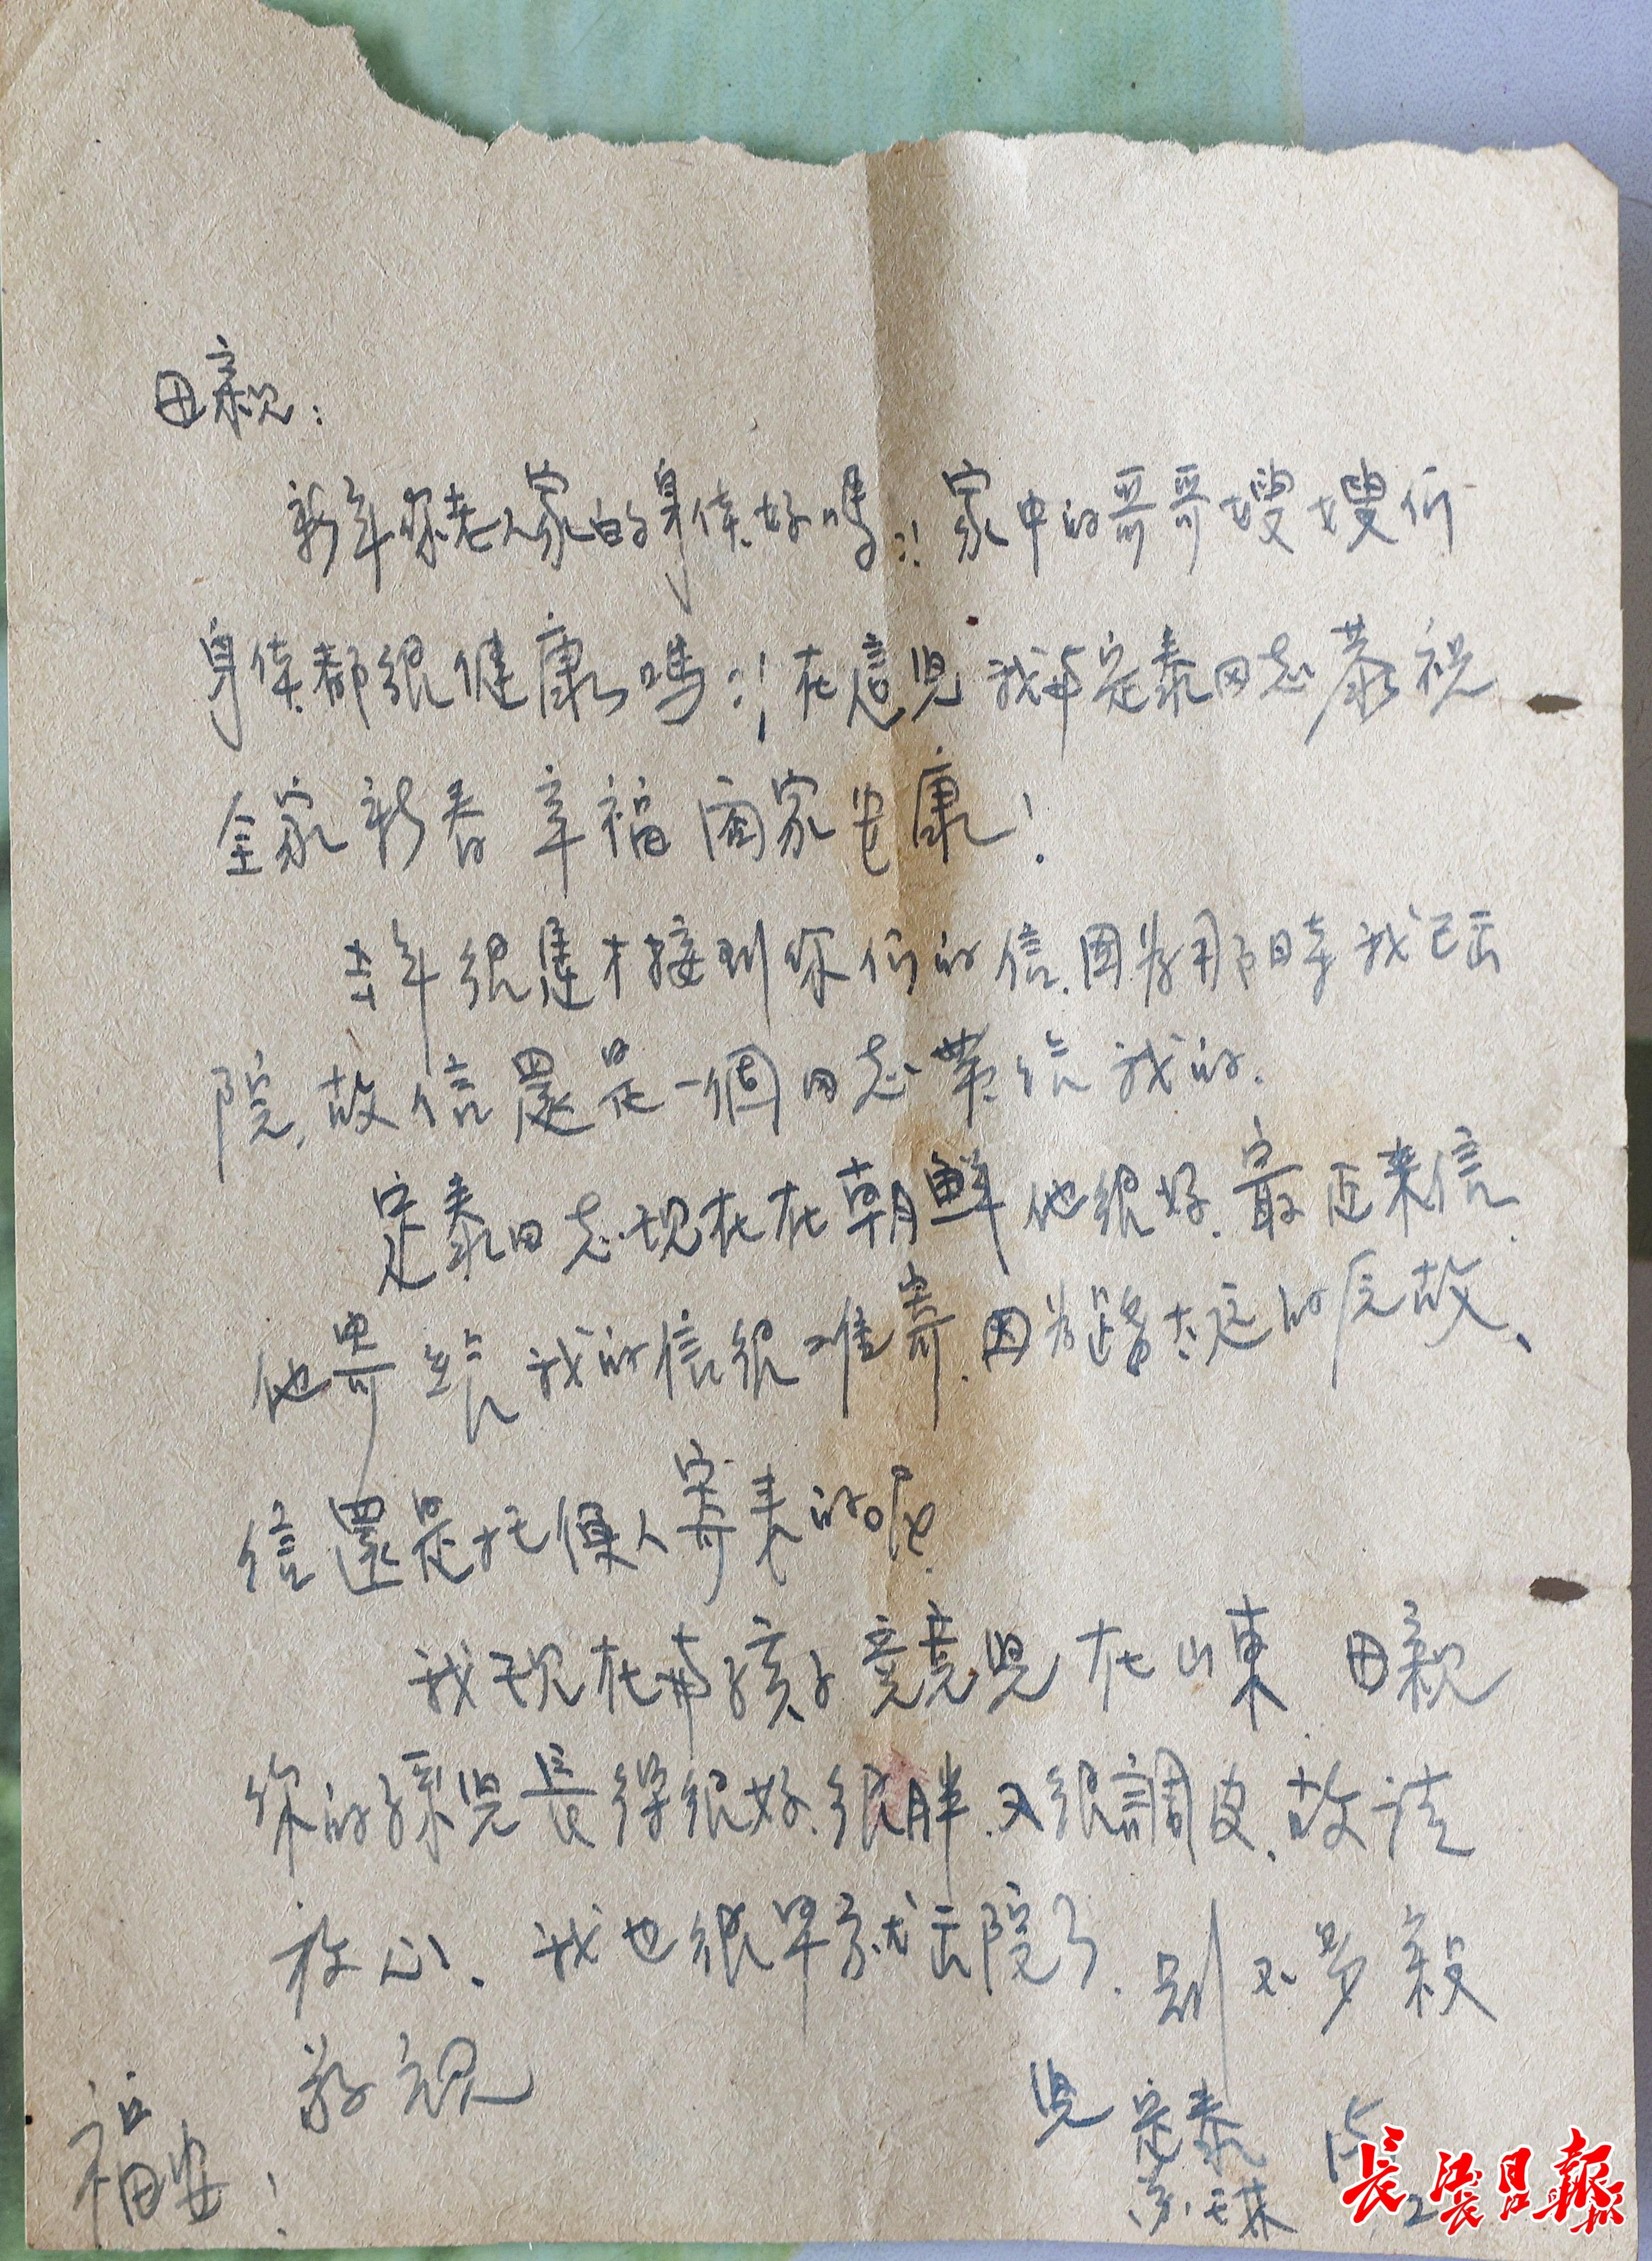 母親：
新年你老人家的身体好嗎？！家中的哥哥嫂嫂们
身体都很健康嗎？！在這兒我和定泰同志恭祝
全家新春幸福闔家安康！
去年很遲才接到你们的信．因為那時我已出
院．故信還是一個同志帶给我的．
定泰同志现在在朝鮮他很好．最近来信．
他寄给我的信很难寄．因為路太远的原故、
信還是托便人寄来的呢．
我现在帶孩子競兒在山東 母親
你的孫兒長得很好．很胖．又很調皮．故请
放心、我也很早就出院了．別不多敍
敬祝
福安！
兒 定泰
长江日报